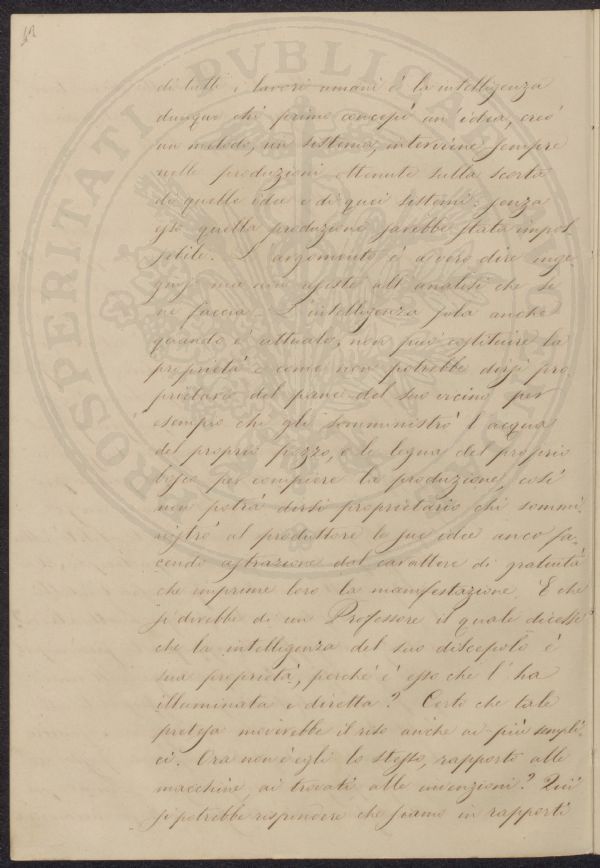 di tutti i lavori umani è la intelligenza
dunque chi primo concepì un idea, creò
un metodo, un sistema, interviene sempre
nelle produzioni ottenute sulla scorta
di quelle idee e di quei sistemi: senza
esso quella produzione sarebbe stata impos
sibile. L'argomento è a vero dire inge
gnoso ma non resiste all'analisi che se
ne faccia. L'intelligenza sola anche
quando è attuale, non può costituire la
proprietà e come non potrebbe dirsi pro
prietario del pane del suo vicino per
esempio chi gli somministrò l'acqua
del proprio pozzo, o le legna del proprio
bosco per compiere la produzione, così
non potrà dirsi proprietario chi sommi
nistrò al produttore le sue idee anco fa-
cendo astrazione dal carattere di gratuità
che imprime loro la manifestazione. E che
si direbbe di un Professore il quale dicesse
che la intelligenza del suo discepolo è
sua proprietà, perché è esso che l'ha
illuminata e diretta? Certo che tale
pretesa moverebbe il riso anche ai più sempli-
ci. Ora non è egli lo stesso, rapporto alle
macchine, ai trovati alle invenzioni? Quì
si potrebbe rispondere che siamo in rapporti
PROSPERITATI PVBLICAE